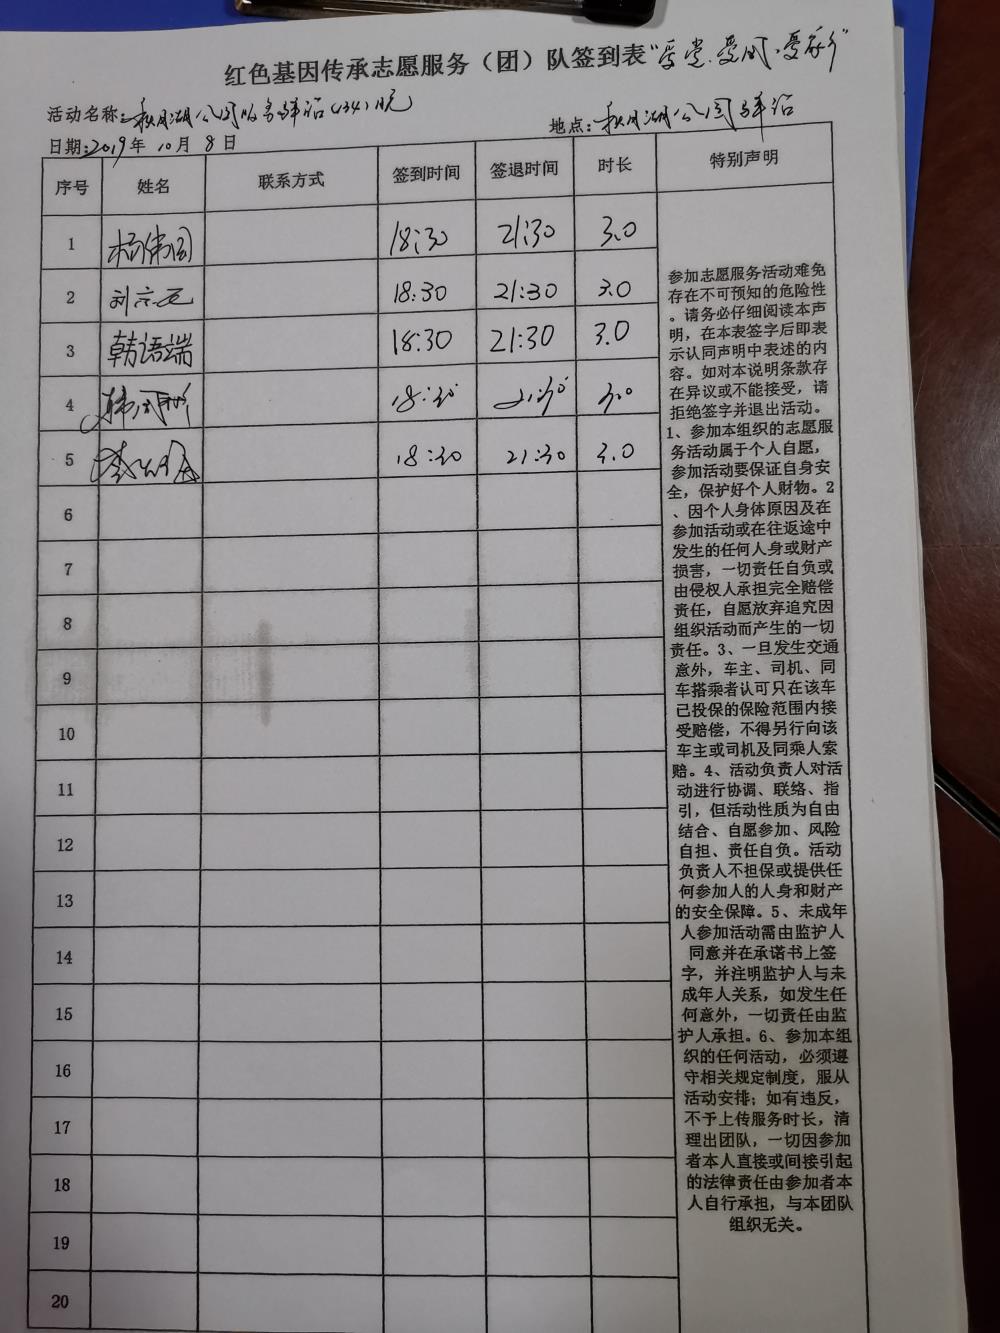 红色基因传承志愿服务（团）队签到表
活动名称：秋月湖公园服务驿站(134)晚
地点：秋月湖公园驿站
日期：2019年10月8日
序号 姓名 联系方式 签到时间 签退时间 时长 特别声明
1 杨伟国 18:30 21:30 3.0
2 18:30 21:30 3.0
3 韩语端 18:30 21:30 3.0
4 18:30 21:30 3.0
5 18:30 21:30 3.0
6
7
8
9
10
11
12
13
14
15
16
17
18
19
20
参加志愿服务活动难免
存在不可预知的危险性
。请务必仔细阅读本声
明，在本表签字后即表
示认同声明中表述的内
容。如对本说明条款存
在异议或不能接受，请
拒绝签字并退出活动。
1、参加本组织的志愿服
务活动属于个人自愿，
参加活动要保证自身安
全，保护好个人财物。2
、因个人身体原因及在
参加活动或在往返途中
发生的任何人身或财产
损害，一切责任自负或
由侵权人承担完全赔偿
责任，自愿放弃追究因
组织活动而产生的一切
责任。3、一旦发生交通
意外，车主、司机、同
车搭乘者认可只在该车
已投保的保险范围内接
受赔偿，不得另行向该
车主或司机及同乘人索
赔。4、活动负责人对活
动进行协调、联络、指
引，但活动性质为自由
结合、自愿参加、风险
自担、责任自负。活动
负责人不担保或提供任
何参加人的人身和财产
的安全保障。5、未成年
人参加活动需由监护人
同意并在承诺书上签
字，并注明监护人与未
成年人关系，如发生任
何意外，一切责任由监
护人承担。6、参加本组
织的任何活动，必须遵
守相关规定制度，服从
活动安排；如有违反，
不予上传服务时长，清
理出团队，一切因参加
者本人直接或间接引起
的法律责任由参加者本
人自行承担，与本团队
组织无关。